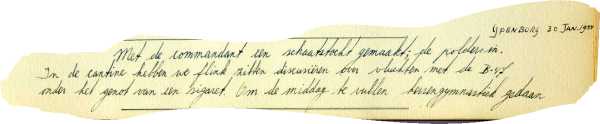 YPENBURG 30 JAN. 19
Met de commandant een schaatstocht gemaakt; de polders in.
In de cantine hebben we flink zitten discusiëren over vluchten met de B-17
onder het genot van een sigaret. Om de middag te vullen hersengymnastiek gedaan